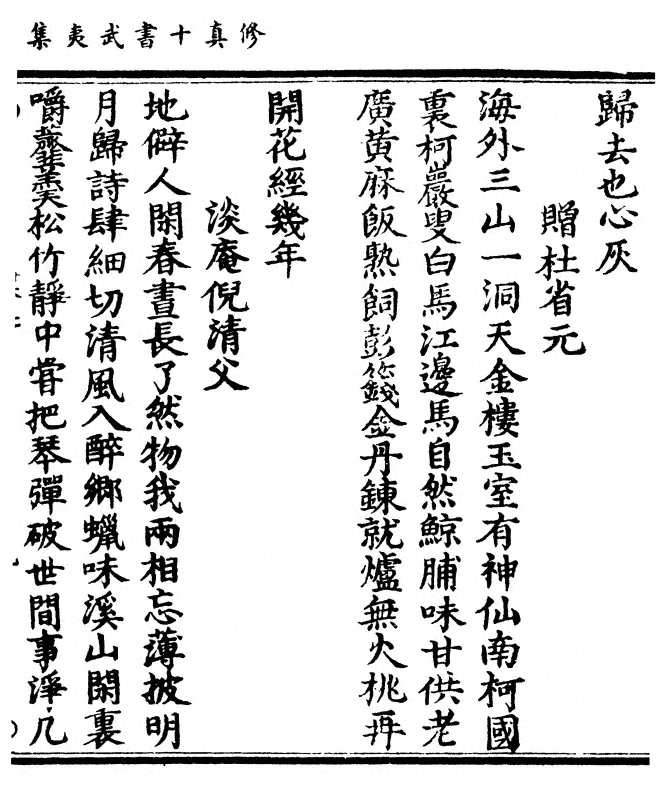 修真十書武夷集
歸去也心灰
贈杜省元
海外三山一洞天金樓玉室有神仙南柯國
裏柯巖叟白馬江邊馬自然鯨脯味甘供老
廣黄麻飯熟飼彭籛金丹鍊就爐無火桃再
開花經幾年
淡庵倪清父
地僻人閑春晝長了然物我兩相忘薄披明
月歸詩肆細切清風入醉鄉蠟味溪山閑裏
嚼虀羹松竹靜中甞把琴彈破世間事淨几